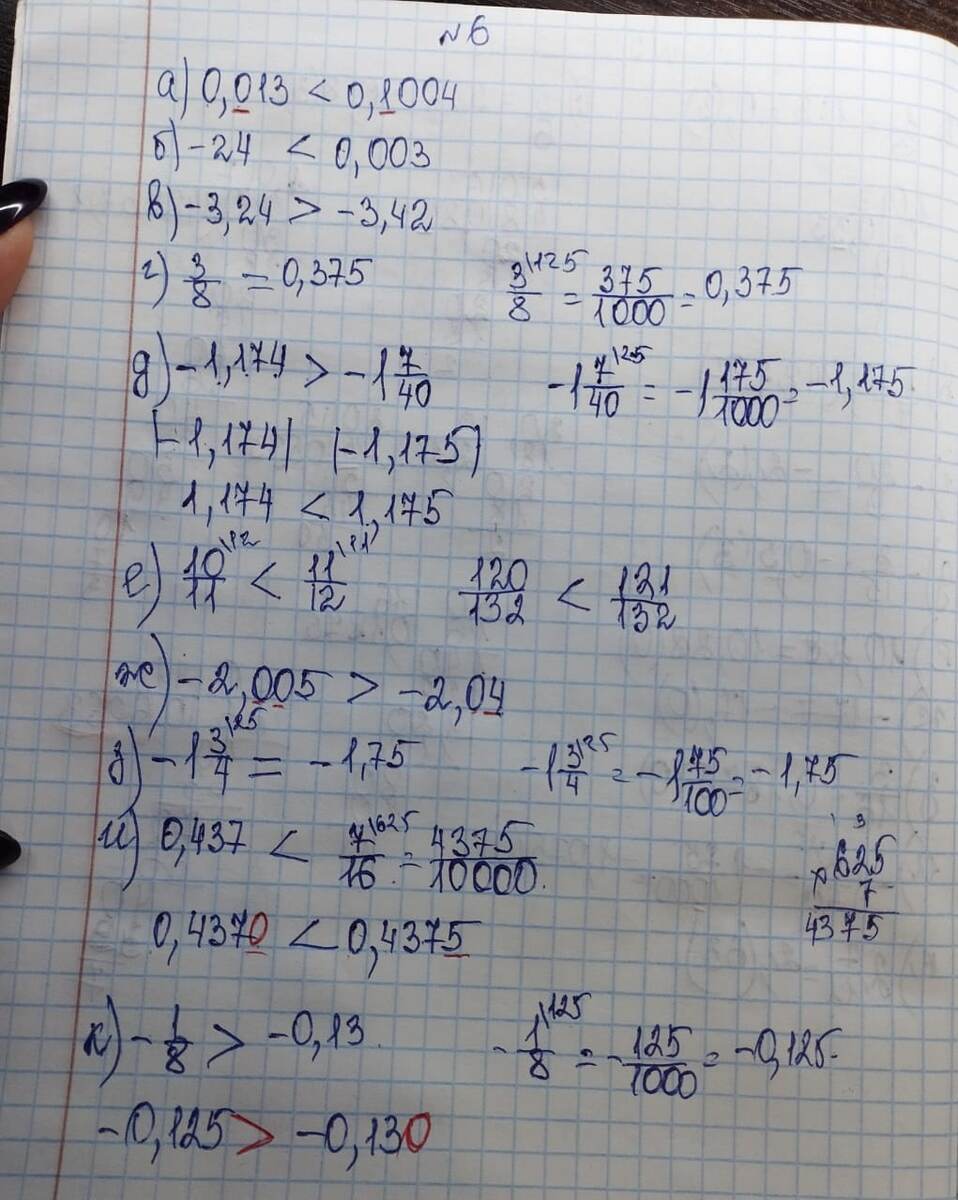 №6
а) 0,013 < 0,1004
б) -24 < 0,003
в) -3,24 > -3,42
г) 3/8 = 0,375 3\125/8 = 375/1000 = 0,375
д) -1,174 > -1 7/40 -1 7\25/40 = -1 175/1000 = -1,175
|-1,174| |-1,175|
1,174 < 1,175
е) 10\12/11 < 11\11/12 120/132 < 121/132
ж) -2,005 > -2,04
з) -1 3\25/4 = -1,75 -1 3\25/4 = -1 75/100 = -1,75
и) 0,437 < 7\625/16 = 4375/10000. 1 3
×625
7
4375
0,4370 < 0,4375
к) -1/8 > -0,13. -1\125/8 = -125/1000 = -0,125.
-0,125 > -0,130